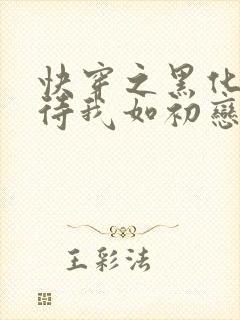 快穿之黑化
待我如初戀
王彩法